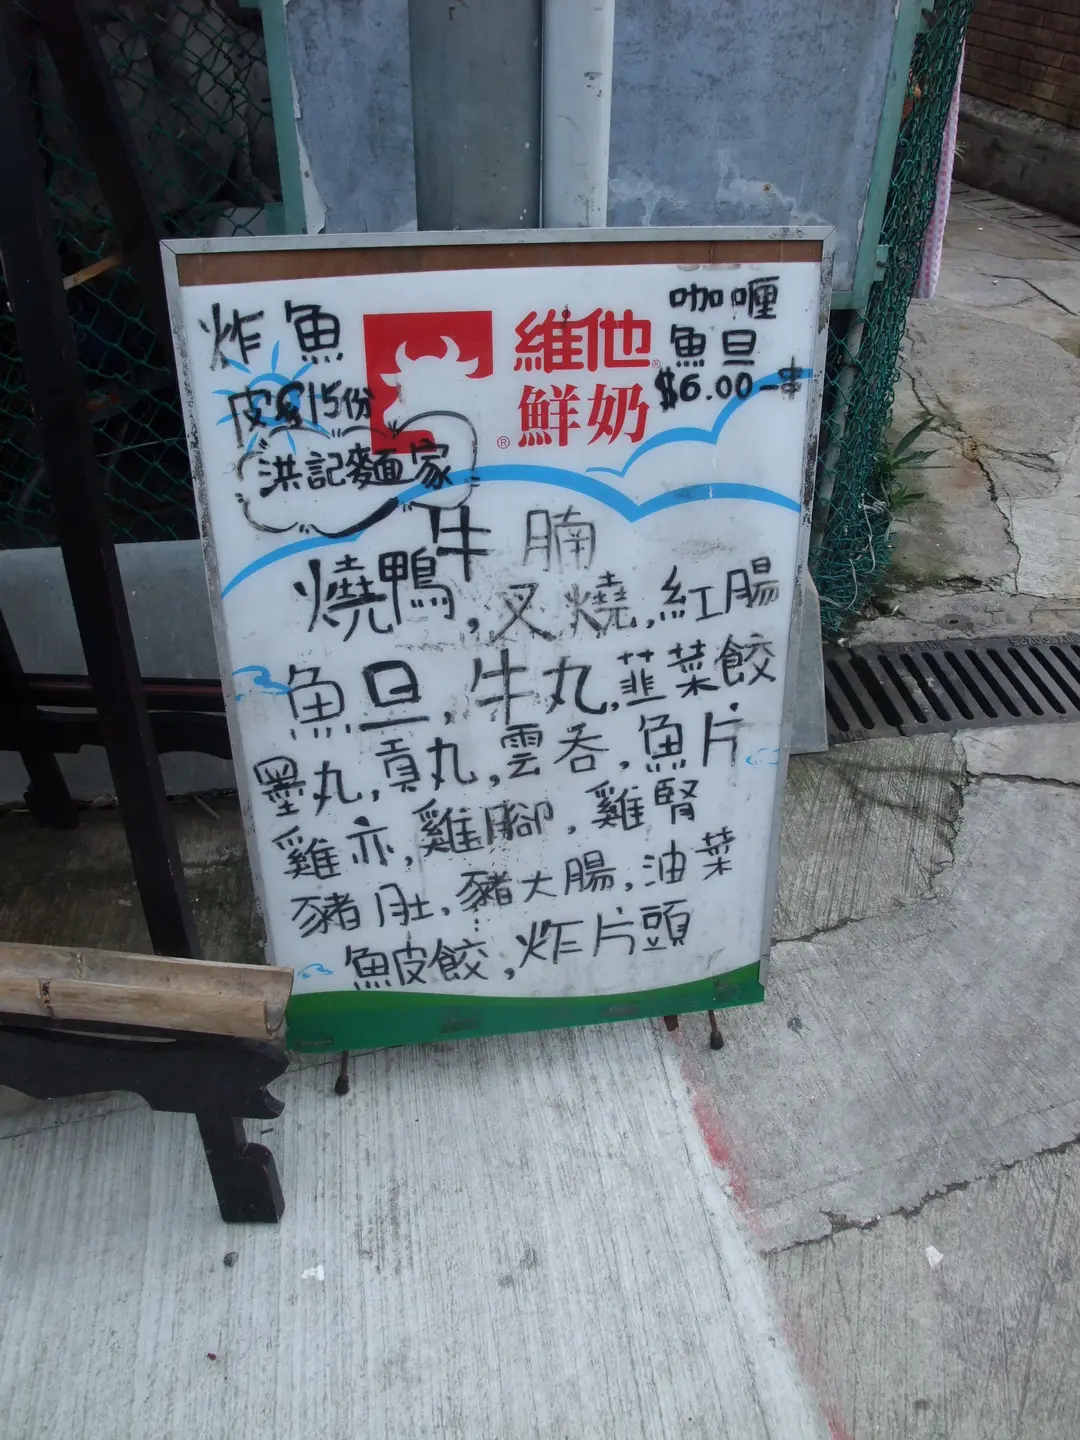 炸魚
皮$15份
洪記麵家
維他
鮮奶
咖喱
魚旦
$6.00一串
牛腩
燒鴨,叉燒,紅腸
魚旦,牛丸,韮菜餃
墨丸,貢丸,雲吞,魚片
雞亦,雞腳,雞腎
豬肚,豬大腸,油菜
魚皮餃,炸片頭